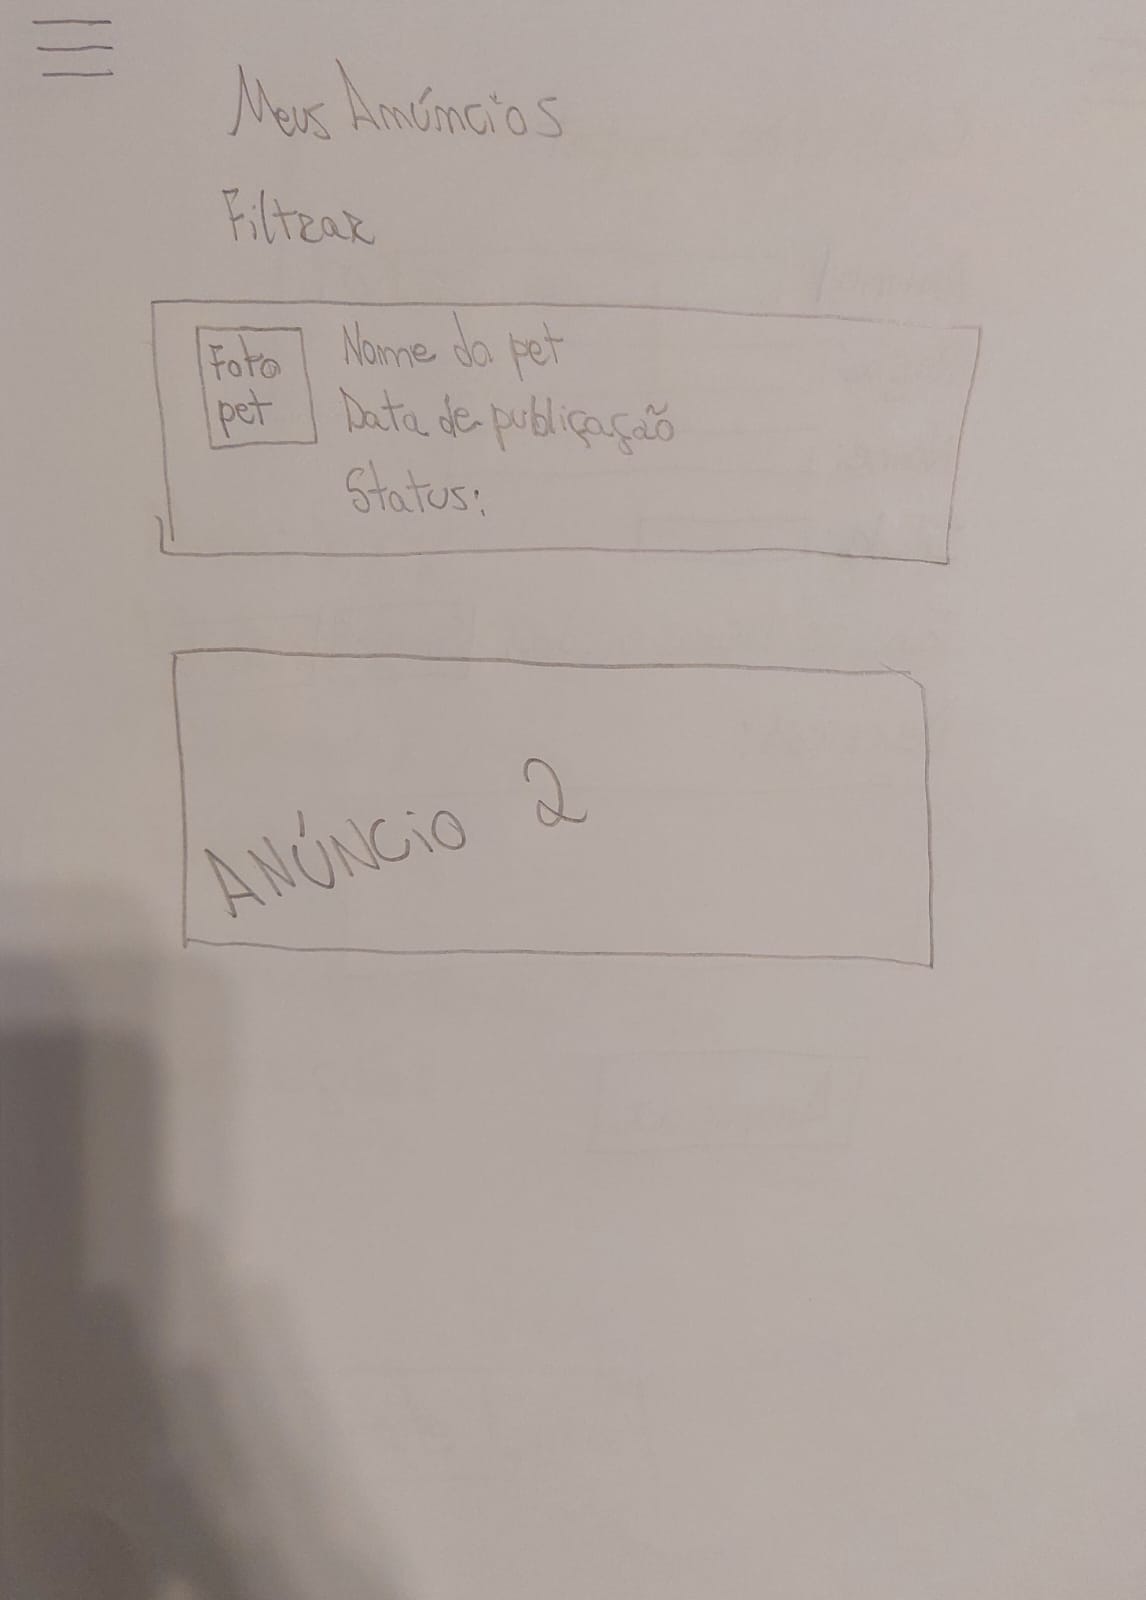 Meus Anúncios
Filtrar
Foto
pet
Nome do pet
Data de publiçação
Status:
ANÚNCIO 2